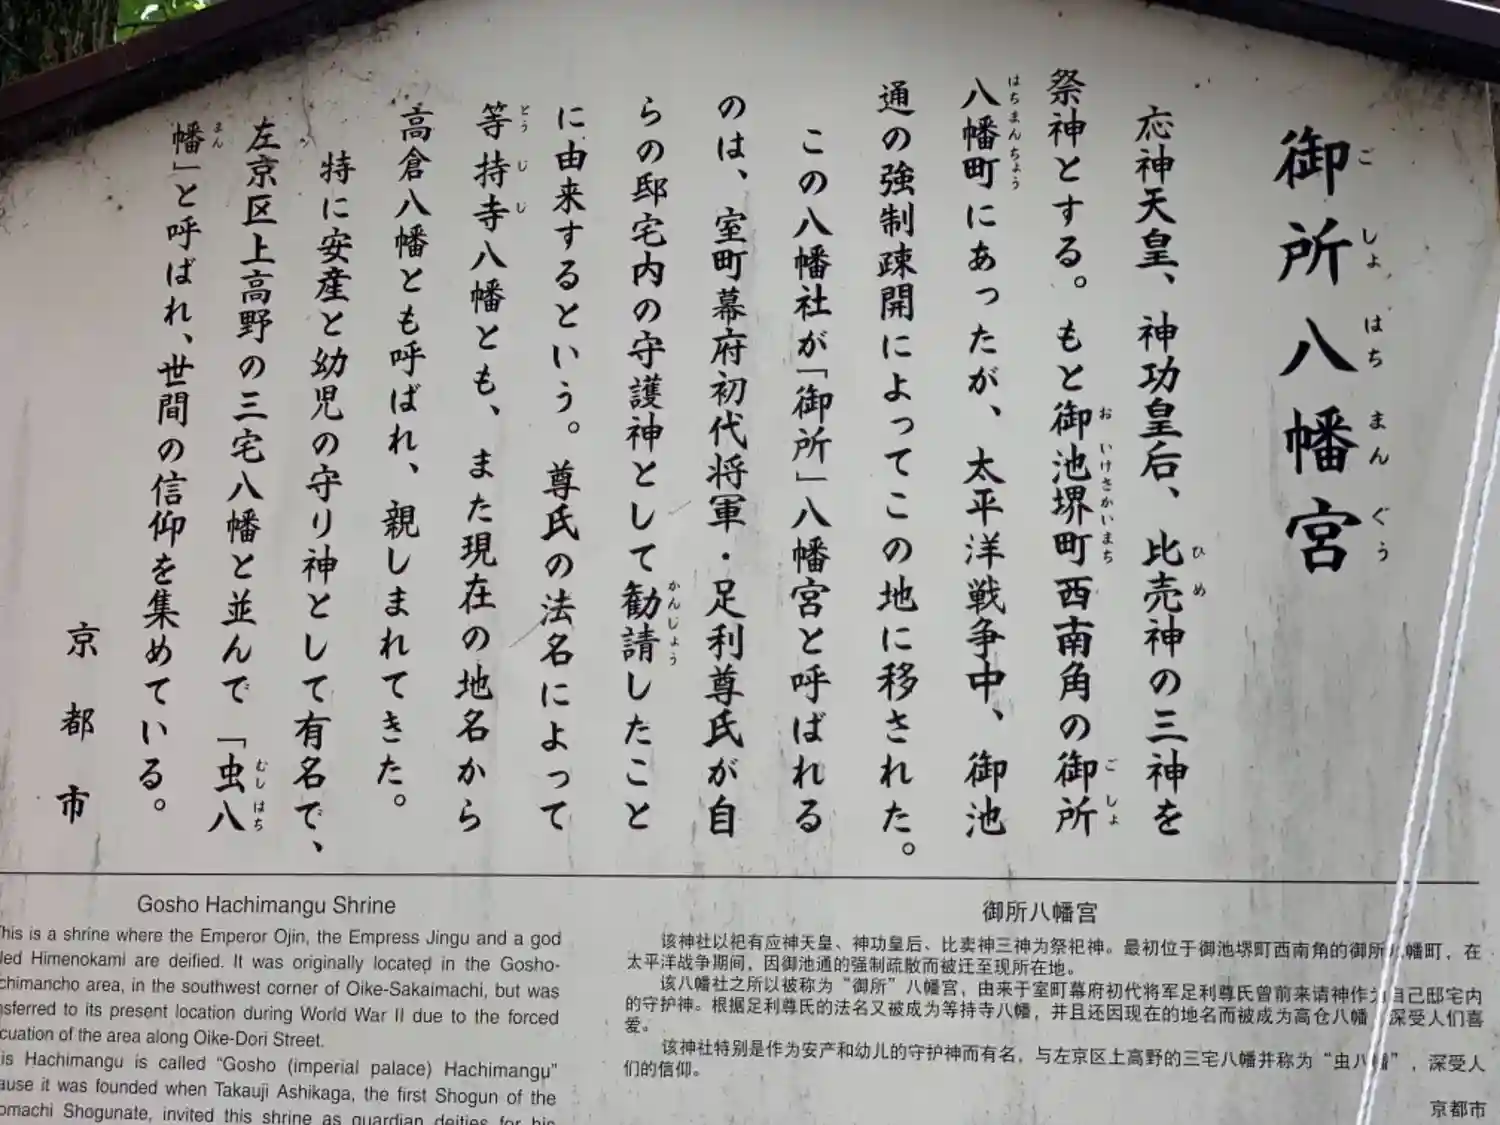 御所八幡宮
ごしょはちまんぐう
応神天皇、神功皇后、比売神の三神を
ひめ
祭神とする。もと御池堺町西南角の御所
おいけさかいまち
ごしょ
八幡町にあったが、太平洋戦争中、御池
はちまんちょう
通の強制疎開によってこの地に移された。
この八幡社が「御所」八幡宮と呼ばれる
のは、室町幕府初代将軍・足利尊氏が自
らの邸宅内の守護神として勧請したこと
かんじょう
に由来するという。尊氏の法名によって
等持寺八幡とも、また現在の地名から
とうじじ
高倉八幡とも呼ばれ、親しまれてきた。
特に安産と幼児の守り神として有名で、
左京区上高野の三宅八幡と並んで「虫八
むしはち
幡」と呼ばれ、世間の信仰を集めている。
まん
京都市
Gosho Hachimangu Shrine
This is a shrine where the Emperor Ojin, the Empress Jingu and a god
Himenokami are deified. It was originally located in the Gosho-
area, in the southwest corner of Oike-Sakaimachi, but was
to its present location during World War II due to the forced
of the area along Oike-Dori Street.
Hachimangu is called “Gosho (imperial palace) Hachimangu”
it was founded when Takauji Ashikaga, the first Shogun of the
Shogunate, invited this shrine as guardian deities for his
御所八幡宫
该神社以祀有应神天皇、神功皇后、比卖神三神为祭祀神。最初位于御池堺町西南角的御所八幡町，在
太平洋战争期间，因御池通的强制疏散而被迁至现所在地。
该八幡社之所以被称为“御所”八幡宫，由来于室町幕府初代将军足利尊氏曾前来请神作为自己邸宅内
的守护神。根据足利尊氏的法名又被成为等持寺八幡，并且还因现在的地名而被成为高仓八幡 深受人们喜
爱。
该神社特别是作为安产和幼儿的守护神而有名，与左京区上高野的三宅八幡并称为“虫八幡”，深受人
们的信仰。
京都市